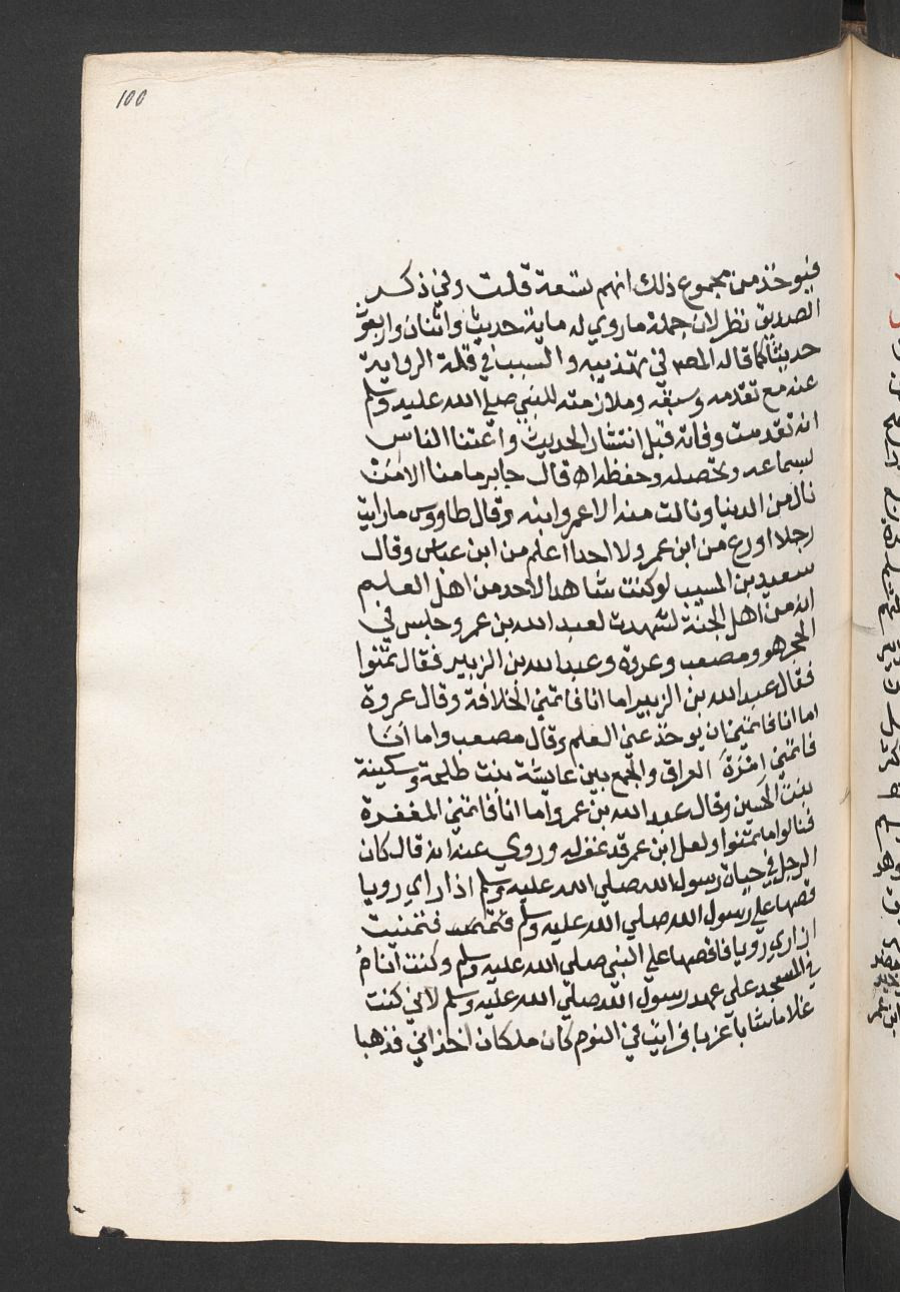 100
فيوخذ من مجموع ذلك انهم تسعة قلت وفي ذكر
الصديق نظر لان جملة ما روي له ماية حديث واثنان واربعون
حديثا كما قاله المص في تهذيبه والسبب في قلة الرواية
عنه مع تقدمه وسبقه وملازمته للنبي صلي الله عليه وسلم
انه تقدمت وفاته قبل انتشار الحديث واعتنا الناس
بسماعه وتحصيله وحفظه اه قال جابر ما منا الا من
نال من الدنيا ونالت منه الا عمر وابنه وقال طاووس ما رايت
رجلا اورع من ابن عمر ولا احدا اعلم من ابن عباس وقال
سعيد بن المسيب لو كنت شاهدا لاحد من اهل العلم
انه من اهل الجنة لشهدت لعبد الله بن عمر وجلس في
الحجر هو ومصعب وعروة وعبد الله بن الزبير فقال تمنوا
فقال عبد الله بن الزبير اما انا فاتمني الخلافة وقال عروة
اما انا فاتمني ان يوخذ عني العلم وقال مصعب واما انا
فاتمني امرة العراق والجمع بين عايشة بنت طلحة وسكينة
بنت الحسين وقال عبد الله بن عمر واما انا فاتمني المغفرة
فنالوا ما تمنوا ولعل ابن عمر قد غفر له وروي عنه انه قال كان
الرجل في حياة رسول الله صلي الله عليه وسلم اذا راي رويا
قصها علي رسول الله صلي الله عليه وسلم فتمنيت
ان اري رويا فاقصها علي النبي صلي الله عليه وسلم وكنت انام
في المسجد علي عهد رسول الله صلي الله عليه وسلم لاني كنت
غلاما شابا عزبا فرايت في النوم كان ملكان اخذاني فذهبا